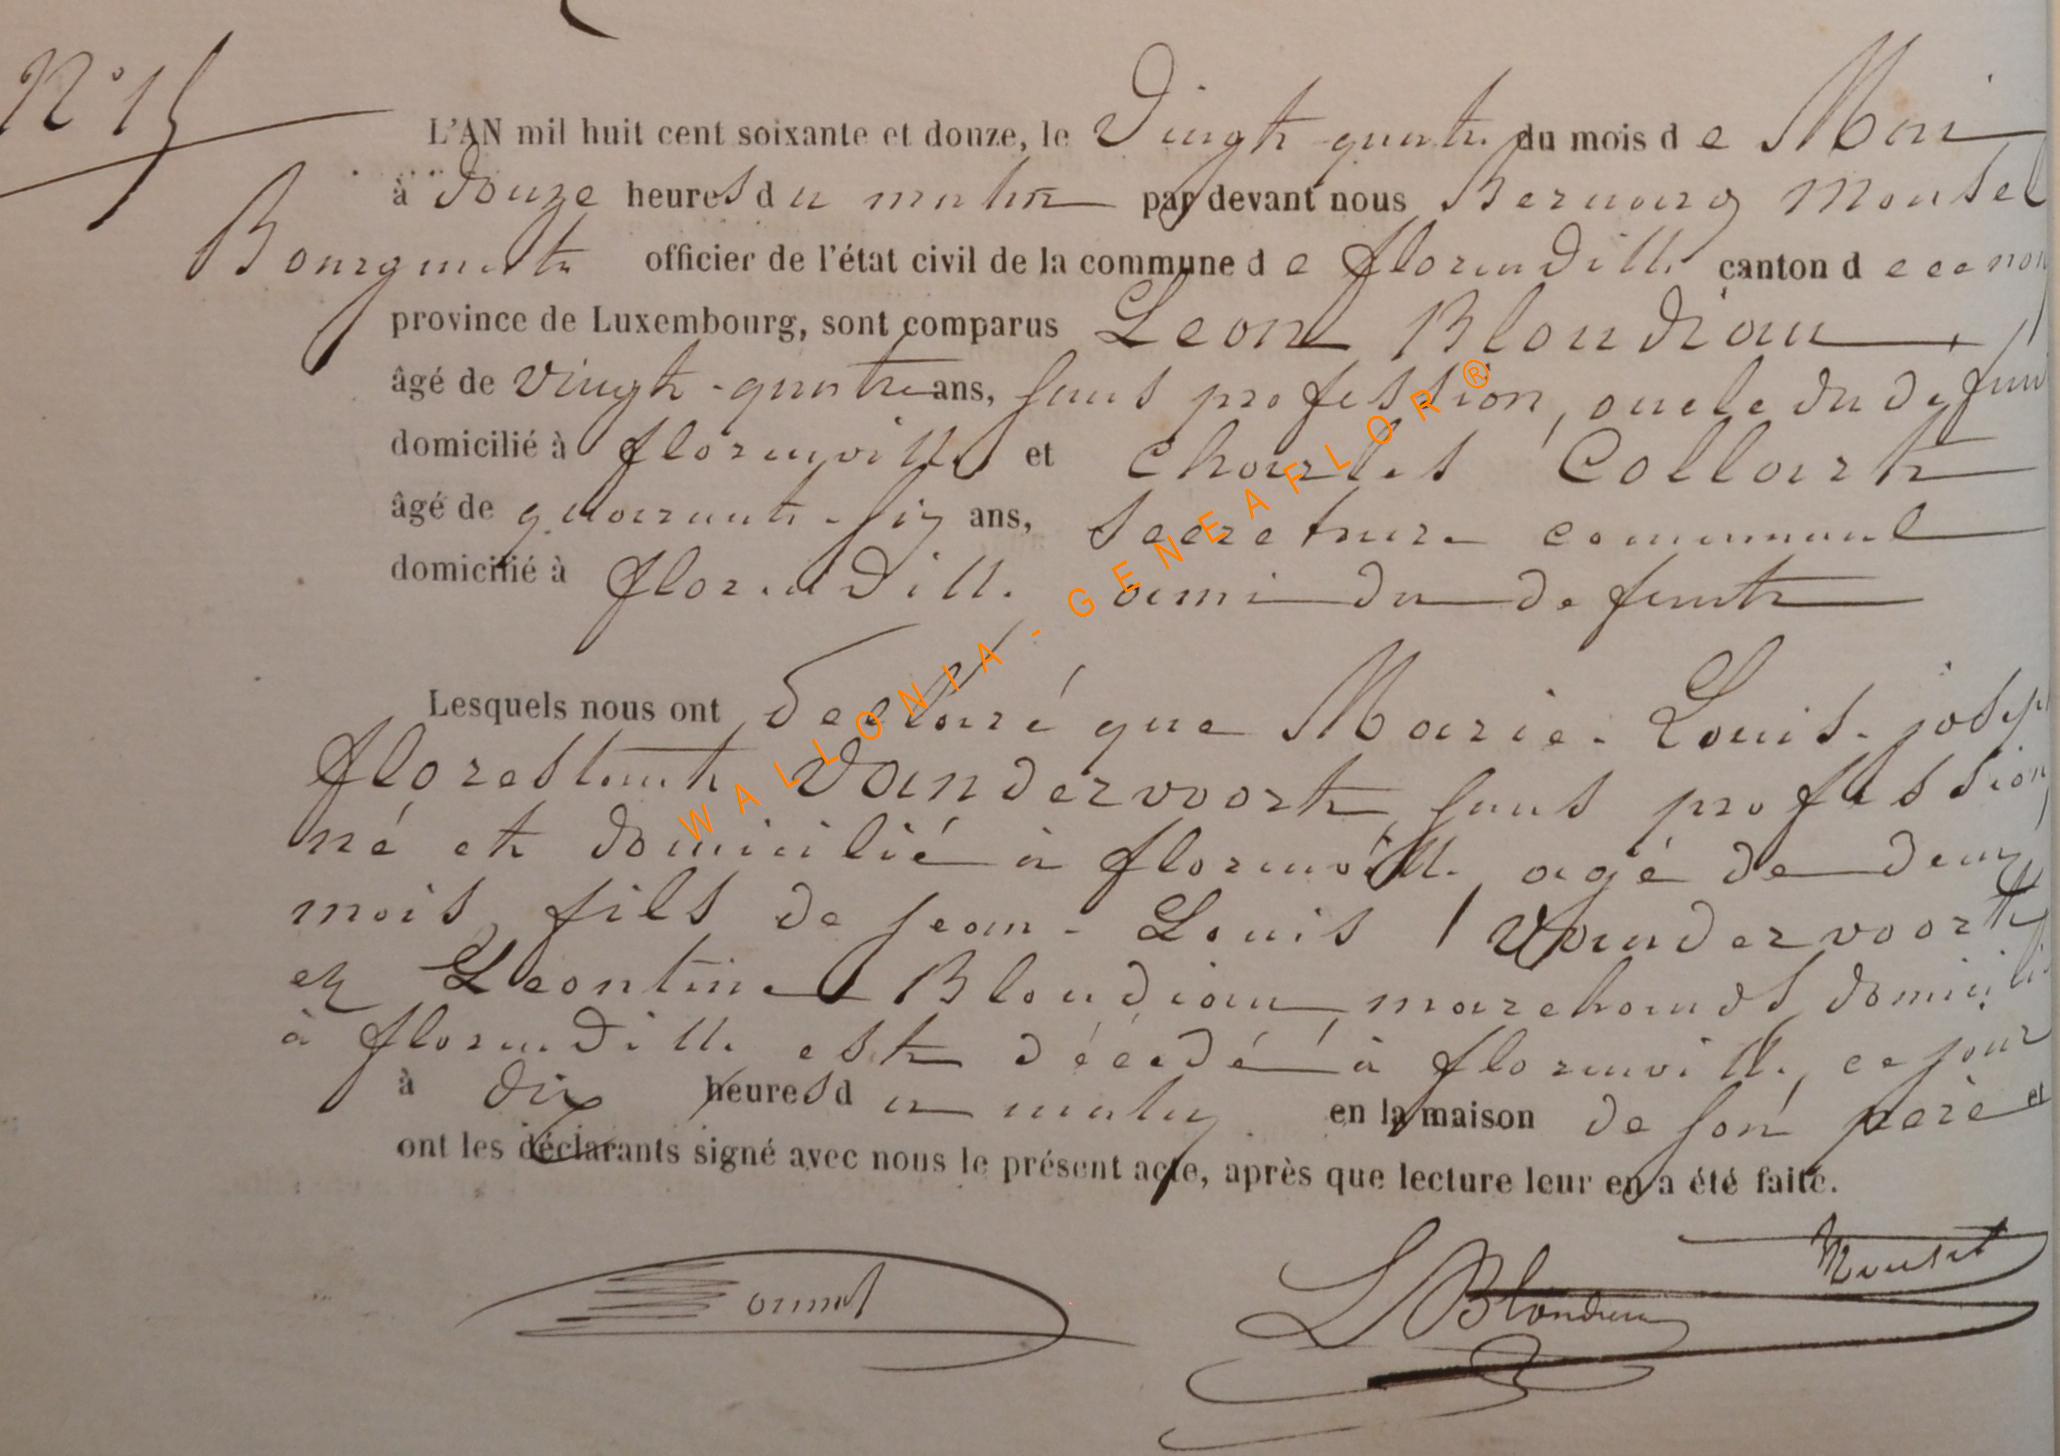 N° 15
L'AN mil huit cent soixante et douze, le Vingt quatre du mois de Mai
à douze heures du matin par devant nous Bernard Monsel
Bourgmestre officier de l'état civil de la commune de florenville canton de ce nom
province de Luxembourg, sont comparus Leon Blondiau
âgé de vingt-quatre ans, sans profession, oncle du defunt
domicilié à florenville et Charles Collart
âgé de quarante-six ans, secretaire communal
domicilié à florenville ami du defunt
Lesquels nous ont declaré que Marie-Louis-joseph
florestant Vandervoort sans profession
né et domicilié à florenville, agé de deux
mois, fils de jean-Louis Vandervoort
et Leontine Blondiau, marchands, domiciliés
à florenville est décédé à florenville, ce jour
à dix heures du matin en la maison de son père et
ont les déclarants signé avec nous le présent acte, après que lecture leur en a été faite.
L Blondiau
WALLONIA - GENEAFLOR®